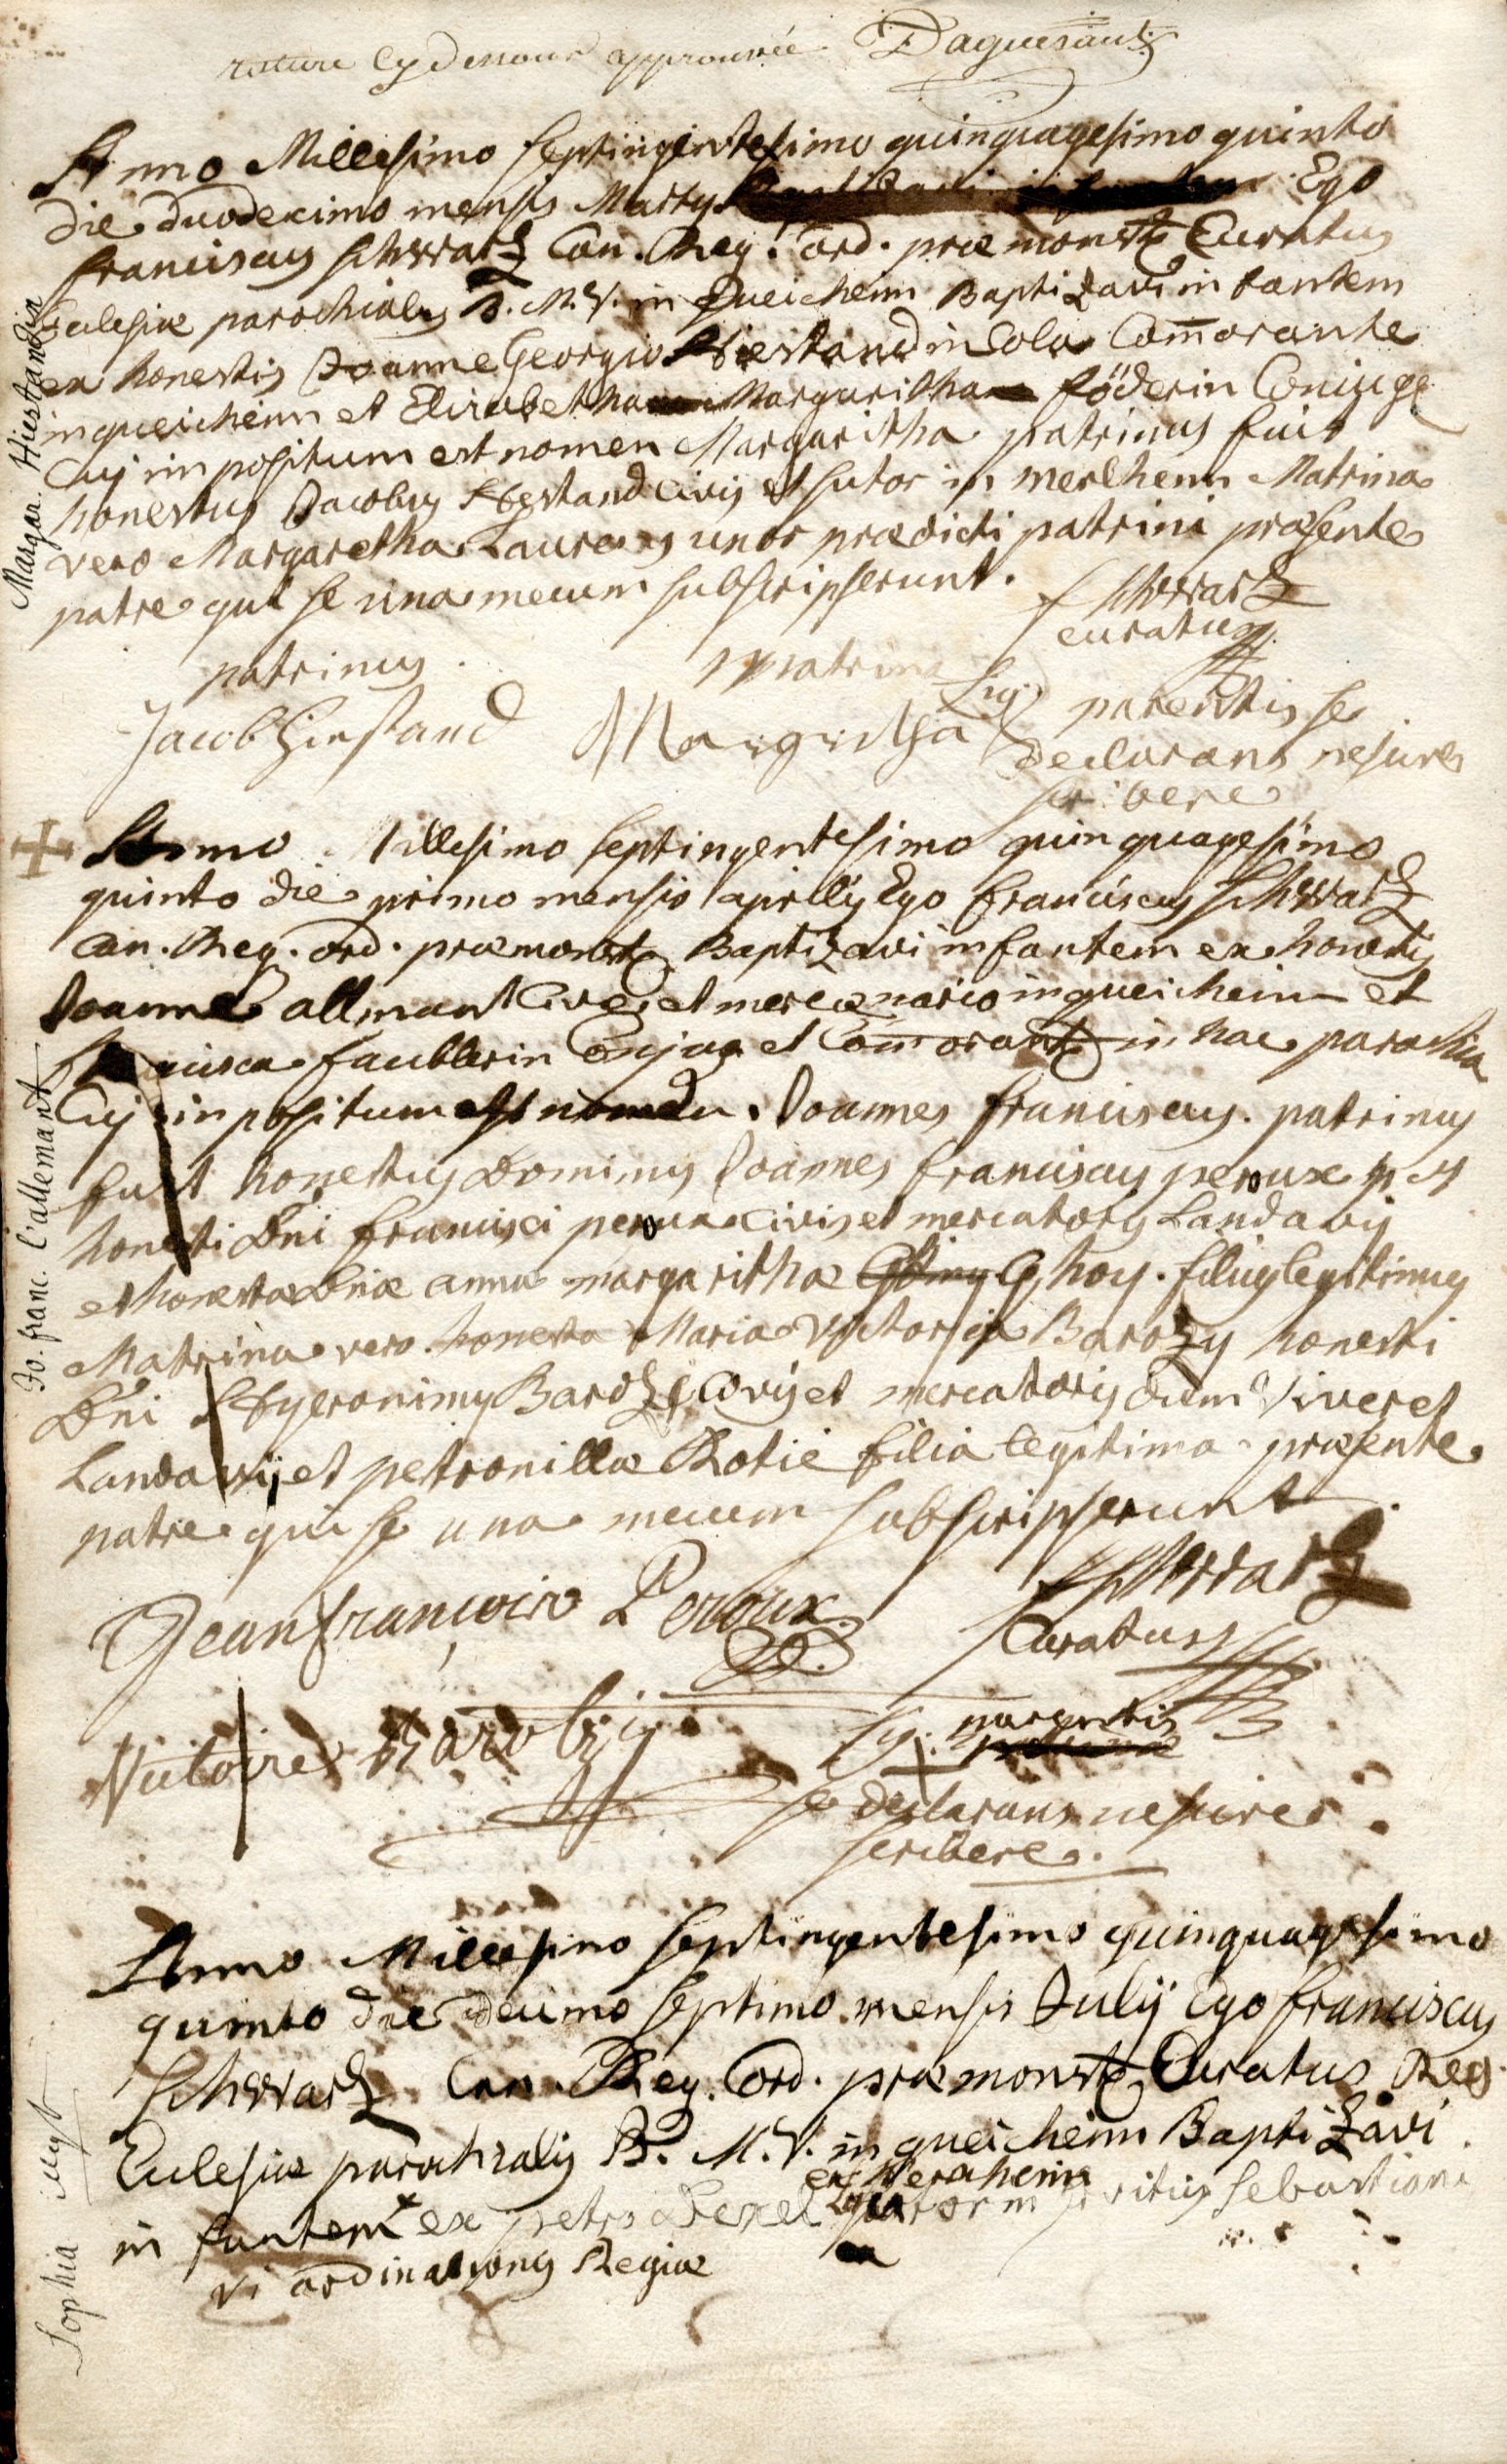 rature cy dessous approuvée Daguesant
Anno Millesimo septingentesimo quinquagesimo quinto
die duodecimo mensis Martÿ Ego
franciscus schwartz Can. Reg. ord. præmonst. Curatus
Eclesiæ parochialis B. M. V. in Queicheim Baptizavi infantem
ex honestis Joanne Georgio Hiestand incola Com̄orante
in queicheim et Elisabetha Margaritha föderin Coniuge
Cuj impositum est nomen Margaritha patrinus fuit
honestus Jacobus Hÿestand civis et sutor in merlheim Matrina
vero Margaretha uxor prædicti patrini præsente
patre qui se una mecum subscripserunt.
schwartz
curatus
patrinus. Matrina
Jacob Hiestand Margretha
Sig. parentis se
declarans nescire
scribere
Margar. Hiestandin
Anno Millesimo septingentesimo quinquagesimo
quinto die primo mensis aprilis Ego franciscus schwartz
Can. Reg. ord. præmonst. Baptizavi infantem ex honestis
Joanne allmant Cive et mercenario in queicheim et
francisca faublerin Conjuge et Com̄orant in hac parochia
Cuj inpositum est nomen. Joannes franciscus. patrinus
fuit honestus Dominus Joannes franciscus peroux
honesti Dni francisci peroux civis et mercatoris Landavij
et honestæ Dnæ annæ margarithæ Choy. filius legitimus
Matrina vero honesta Maria Victoria Barozy honesti
Dni Hyeronimy Barozy Civis et mercatoris dum viveret
Landavij et petronillæ Rotié filia legitima præsente
patre qui se una mecum subscripserunt.
Jo. franc. l'allemant
Jean françois Peroux
schwartz
Curatus
Victoire Barozy
Sig. parentis
se declarans nescire
scribere.
Anno Millesimo septingentesimo quinquagesimo
quinto die decimo septimo mensis Julij Ego franciscus
schwartz Can. Reg. Ord. præmonst. Curatus Reg.
Eclesiæ parochialis B. M. V. in queicheim Baptizavi
infantem ex petro
vi ordinationis Regiæ
Sophia